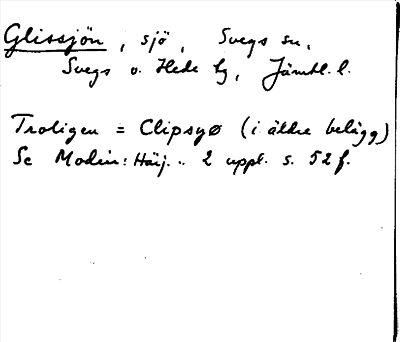 Glissjön, sjö, Svegs sn,
Svegs o. Hede tg, Jämtl. l.
Troligen = Clipsyø (i äldre belägg)
Se Modin: Härj.. 2 uppl. s. 52 f.